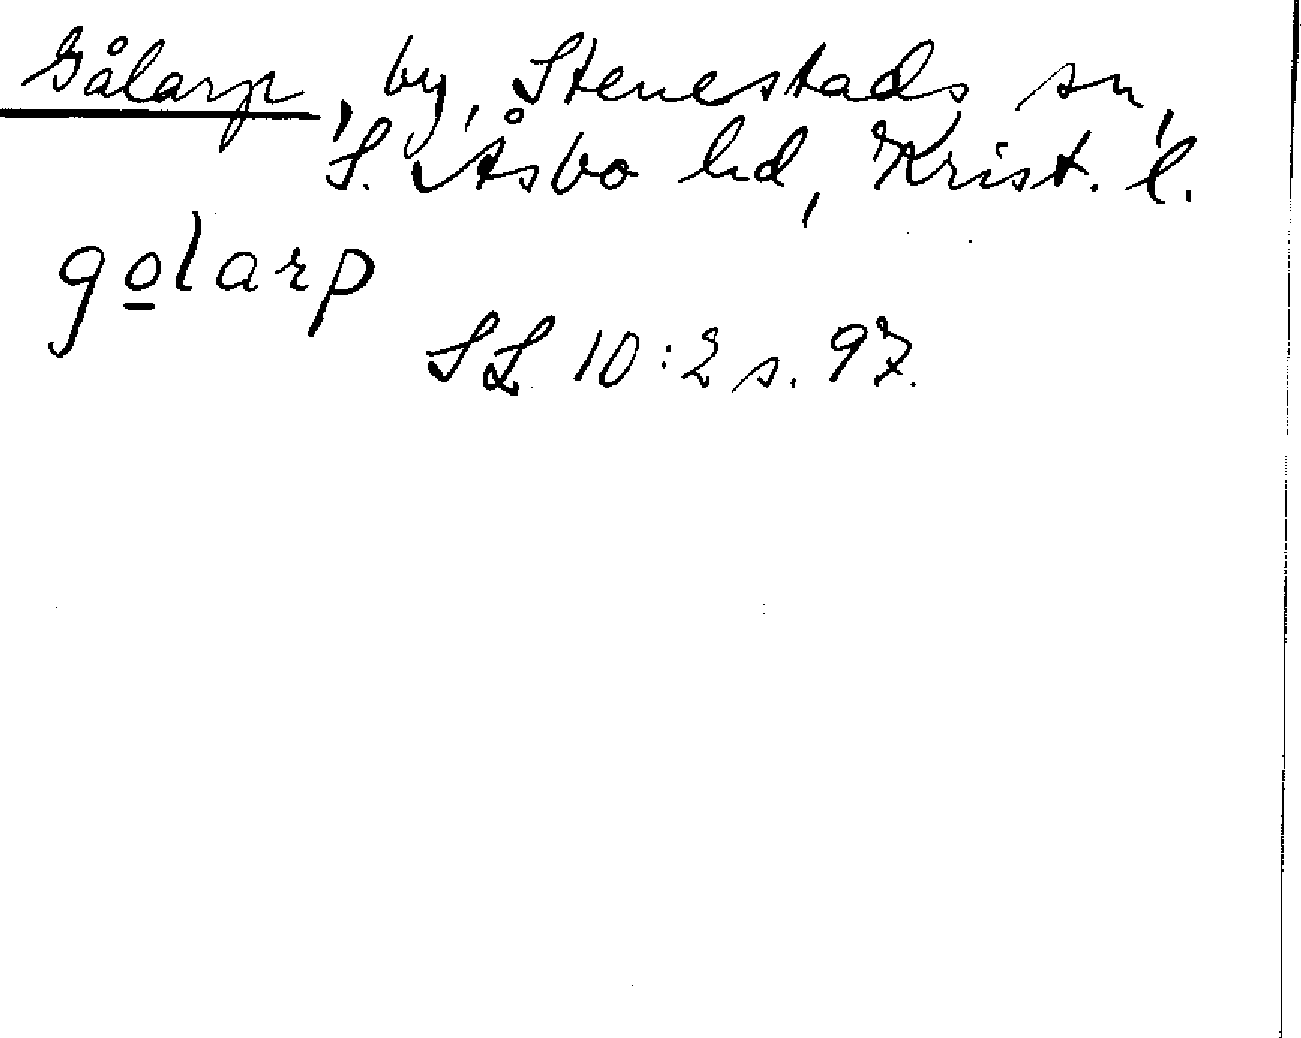 Gålarp, by, Stenestads sn,
S. Åsbo hd, Krist. l.
go̲larp
SL 10:2 s. 97.